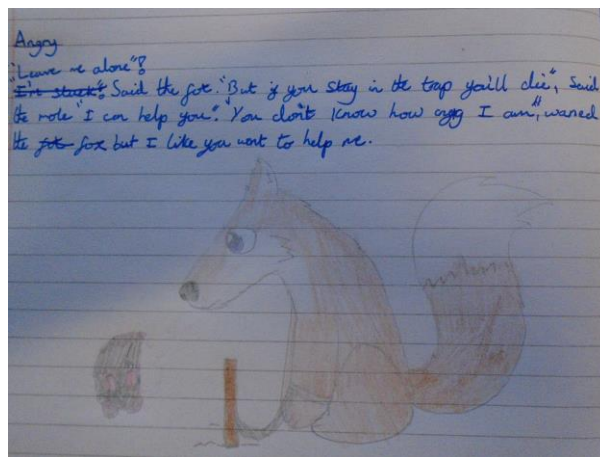 Angry
"Leave me alone"!
I'm stuck". Said the fox. "But if you stay in the trap you'll die", Said
the mole "I can help you". "You don't know how angry I am", warned
the fox fox but I like you want to help me.